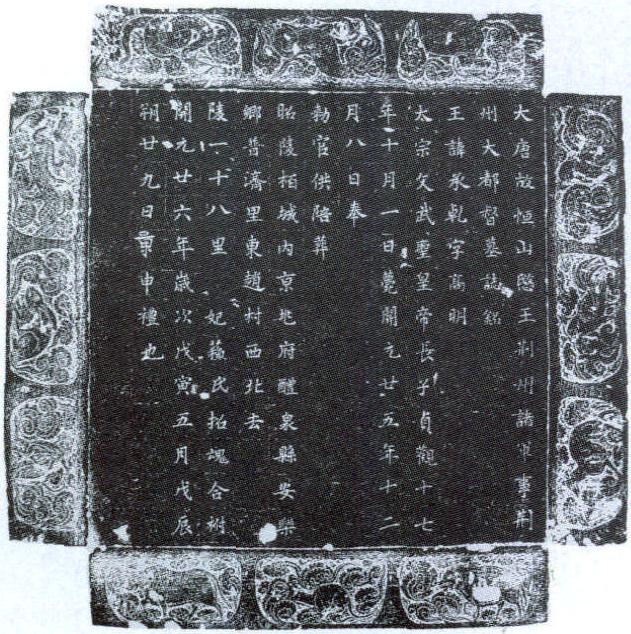 大唐故恒山愍王荆州諸軍事荆
州大都督墓誌銘
王諱承乾字高明
太宗文武聖皇帝長子貞觀十七
年十月一日薨開元廿五年十二
月八日奉
勑官供陪葬
昭陵栢城內京兆府醴泉縣安樂
鄉普濟里東趙村西北去
陵一十八里 妃蘓氏招魂合祔
開元廿六年歲次戊寅五月戊辰
朔廿九日景申禮也